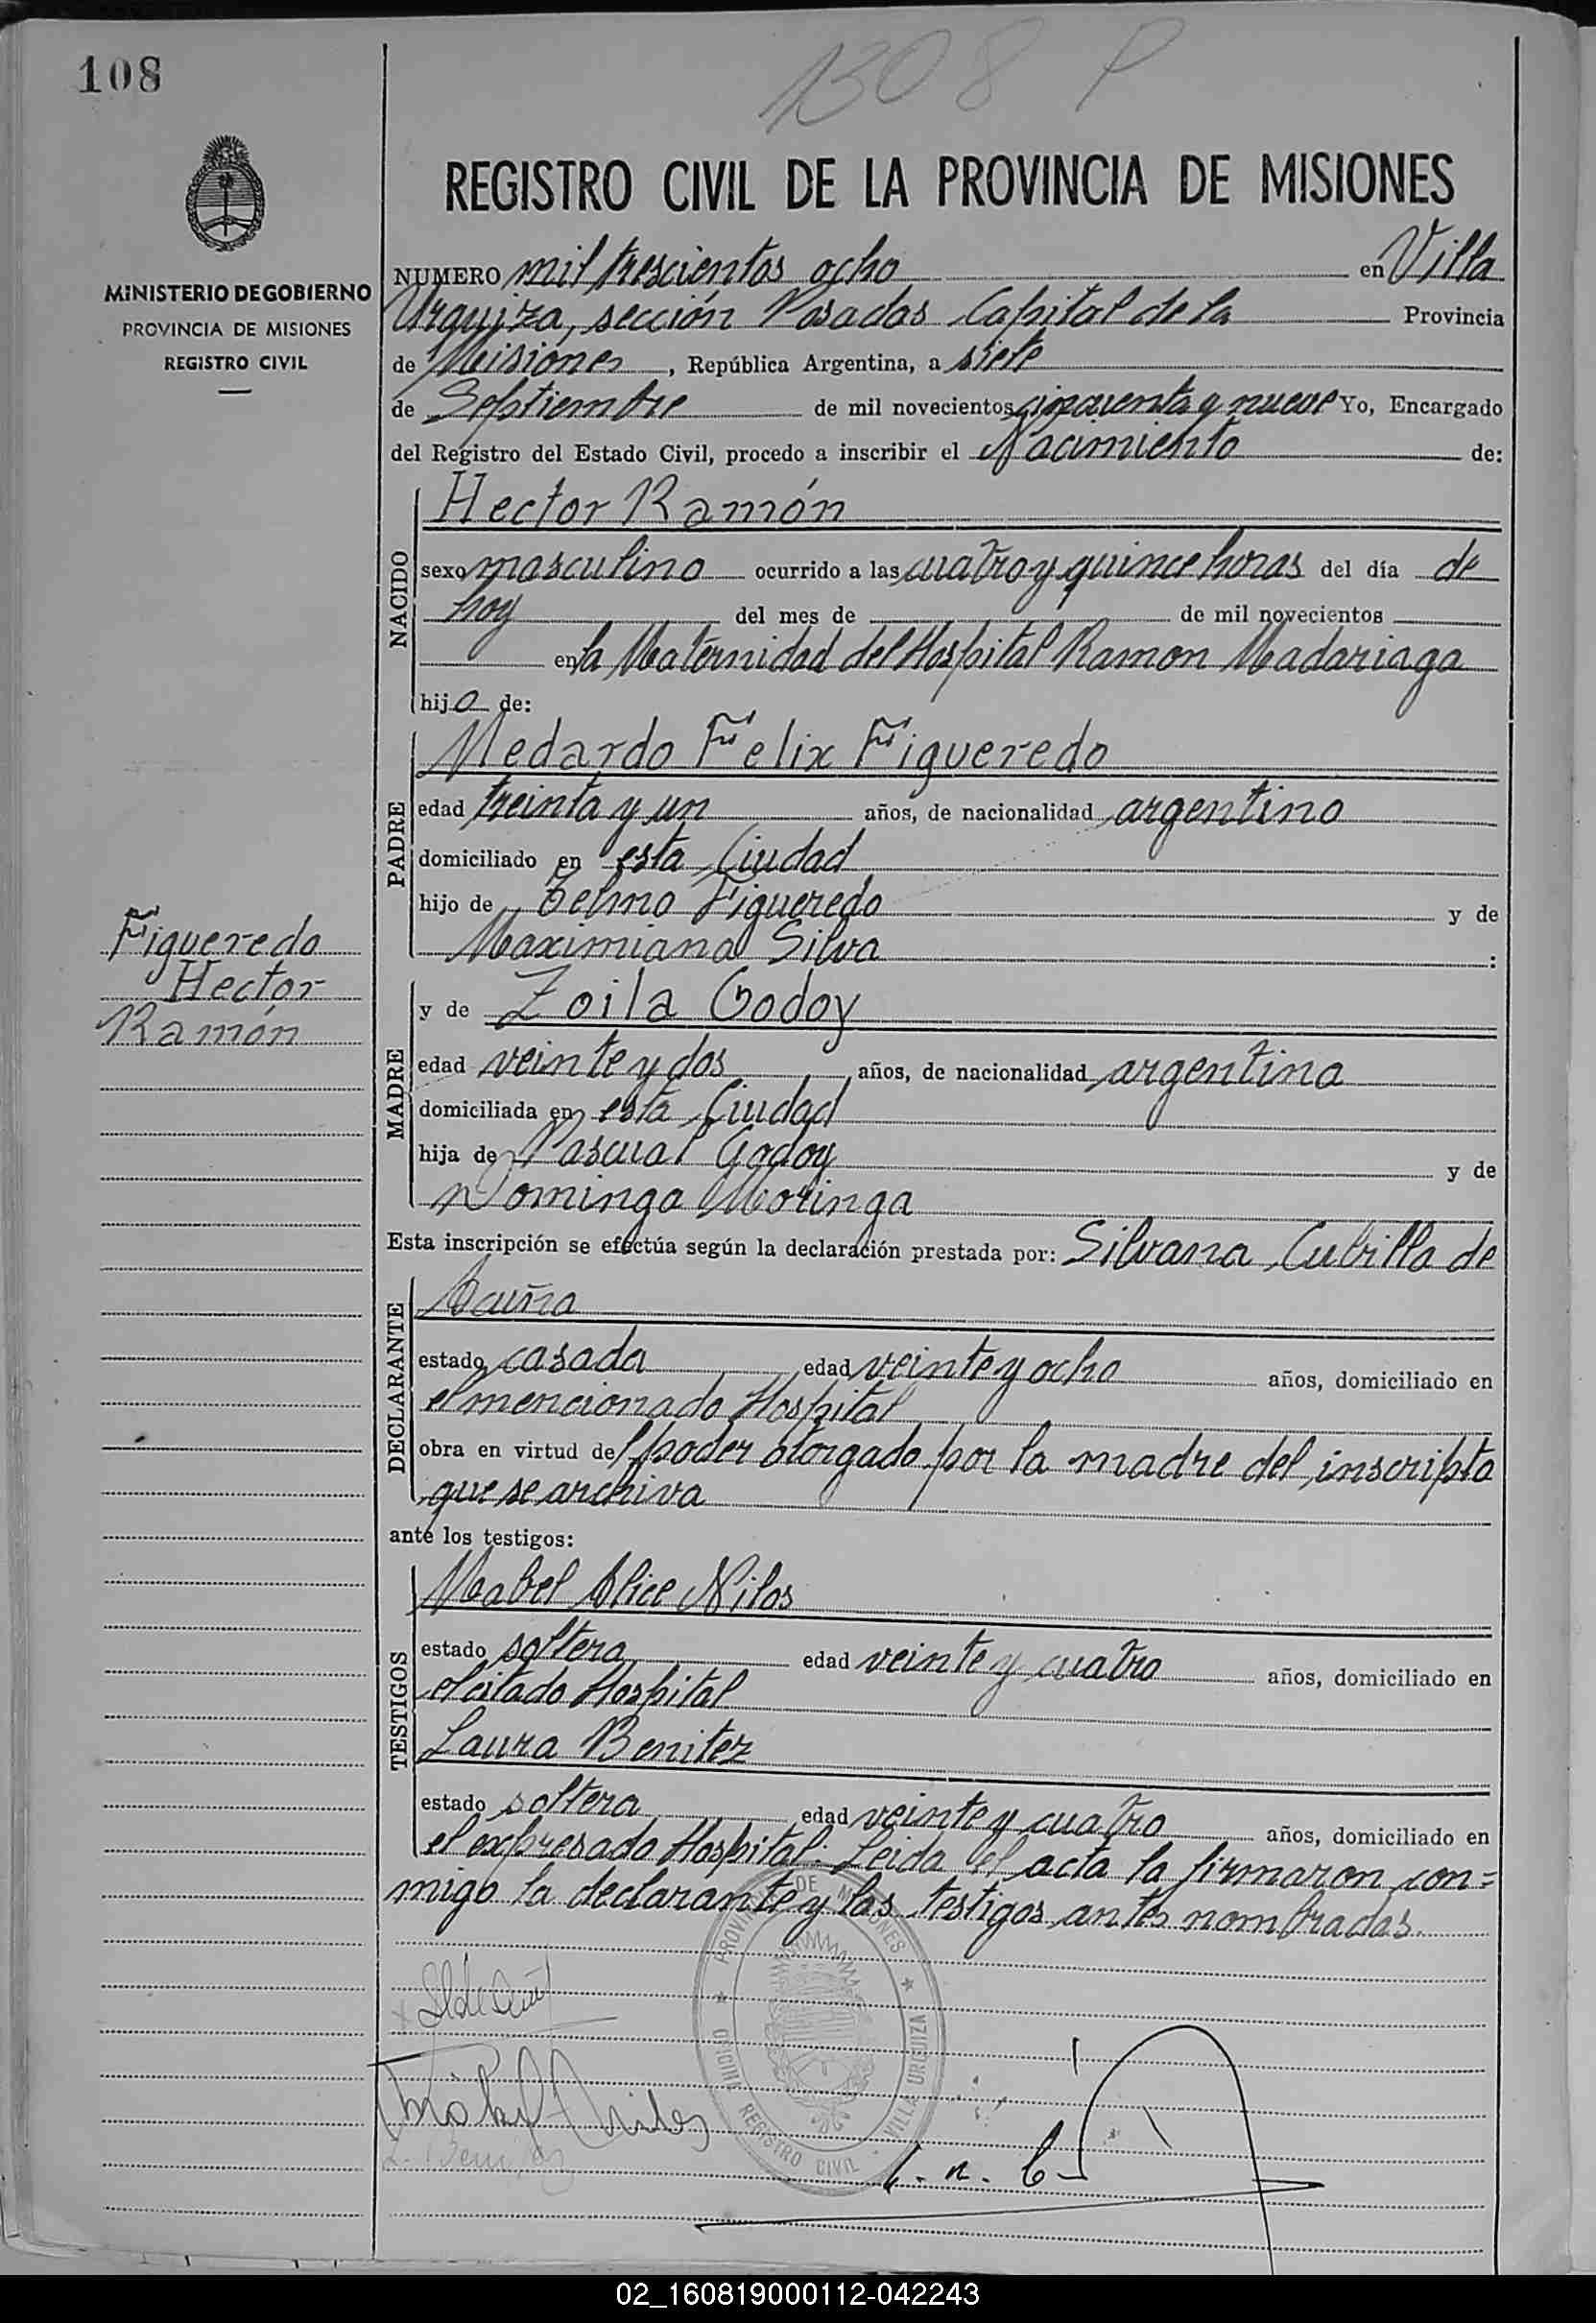 108
1308 P
MINISTERIO DE GOBIERNO
PROVINCIA DE MISIONES
REGISTRO CIVIL
REGISTRO CIVIL DE LA PROVINCIA DE MISIONES
NUMERO mil trescientos ocho en Villa
Urquiza, sección Posadas Capital de la Provincia
de Misiones, República Argentina, a siete
de Septiembre de mil novecientos cincuenta y nueve Yo, Encargado
del Registro del Estado Civil, procedo a inscribir el Nacimiento de:
NACIDO
Hector Ramón
sexo masculino ocurrido a las cuatro y quince horas del día de
hoy del mes de de mil novecientos
en la Maternidad del Hospital Ramon Madariaga
hijo de:
PADRE
Medardo Felix Figueredo
edad treinta y un años, de nacionalidad argentino
domiciliado en esta Ciudad
hijo de Telmo Figueredo y de
Maximiana Silva :
Figueredo
Hector
Ramón
MADRE
y de Zoila Godoy
edad veinte y dos años, de nacionalidad argentina
domiciliada en esta Ciudad
hija de Pascual Godoy y de
Dominga Moringa
Esta inscripción se efectúa según la declaración prestada por: Silvana Cubilla de
DECLARANTE
Acuña
estado casada edad veinte y ocho años, domiciliado en
el mencionado Hospital
obra en virtud del poder otorgado por la madre del inscripto
que se archiva
ante los testigos:
TESTIGOS
Mabel Alice Nilos
estado soltera edad veinte y cuatro años, domiciliado en
el citado Hospital
Laura Benitez
estado soltera edad veinte y cuatro años, domiciliado en
el expresado Hospital: Leida el acta la firmaron con=
migo la declarante y las testigos antes nombradas.
PROVINCIA DE MISIONES
OFICINA REGISTRO CIVIL - VILLA URQUIZA
L. Benitez
02_160819000112-042243